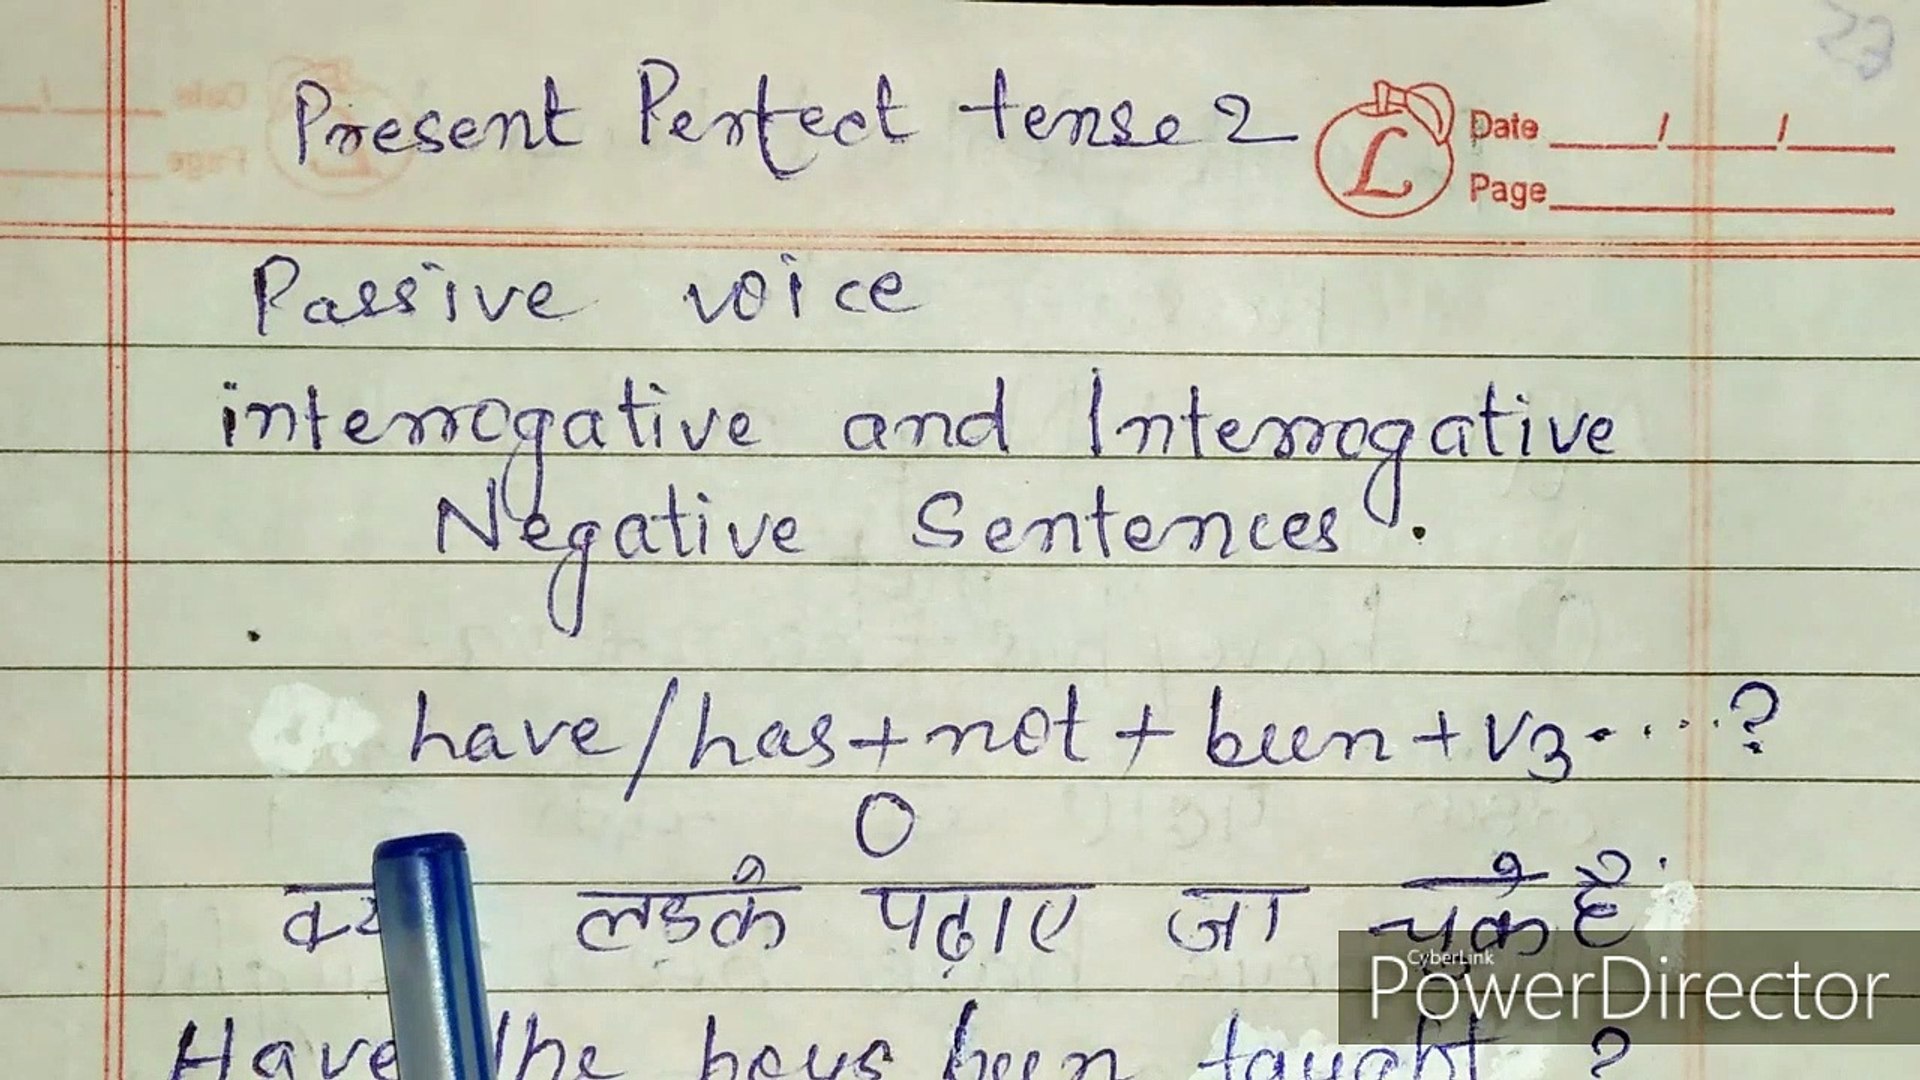 Present Perfect tense 2
L
Date ___/___/___
Page___
Passive voice
interrogative and Interrogative
Negative Sentences.
have/has+not+been+v3.....?
O
लडके पढ़ाए जा चुके हैं
CyberLink
PowerDirector
Have the boys been taught ?